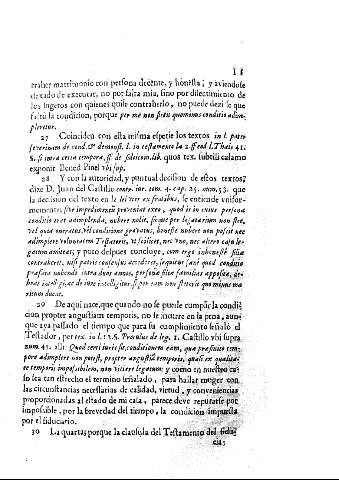 18
traher matrimonio con persona decente, y honesta; y aviendose
dexado de executar, no por falta mia, sino por disentimiento de
los sugetos con quienes quise contraherlo, no puede dezirse que
faltò la condicion, porque per me non stetit quominus conditio adim-
pleretur.
27 Coinciden con esta misma especie los textos in l. pater
Severinam de cond. & demonst. l. in testamento la 2. ff. eod l. Thais 41.
§. si intra certa tempora, ff. de fideicom. lib. quos tex. subtili calamo
exponit Bened. Pinel vbi sup.
28 Y con la autoridad, y puntual decision de estos textos,
dize D. Juan del Castillo contr. iur. tom. 4. cap. 25. num. 53. que
la decision del texto en la lei vter ex fratribus, se entiende vnifor-
memente, sive impedimentum proveniat ex eo, quod is in cuius persona
conditio erat adimplenda, nubere nolit, sic que per legatarium non stet,
vel quia moriatur, vel conditione gravatus, honestè nubere non possit nec
adimplere voluntatem Testatoris, vt scilicet, nec tunc, nec altero casu le-
gatum amittat; y poco despues concluye, cum ergo inhonestè filia
contraheret, nisi patris consensus accederet, sequitur sanè quod conditio
præfata nubendi intra duos annos, personæ filiæ familias apposita, de-
beat intelligi, ac de iure intelligitur, si per eam non steterit quominus ma-
ritum ducat.
29 De aqui nace, que quando no se puede cumplir la condi-
cion propter angustiam temporis, no se incurre en la pena, aun-
que aya passado el tiempo que para su cumplimiento señalò el
Testador, per tex. in l. 13. §. Proculus de leg. 1. Castillo vbi supra
num. 41. ibi: Quod certi iuris sit, conditionem eam, quæ præfinito tem-
pore adimplere non potest, propter angustiam temporis, quasi ex qualitate
ce temporis impossibilem, non vitiare legatum: y como en nuestro ca-
so sea tan estrecho el termino señalado, para hallar muger con
las circunstancias necessarias de calidad, virtud, y conveniencias
proporcionadas al estado de mi casa, parece deve reputarse por
impossible, por la brevedad del tiempo, la condicion impuesta
por el fiduciario.
30 La quarta; porque la clausula del Testamento del fidu-
cia-